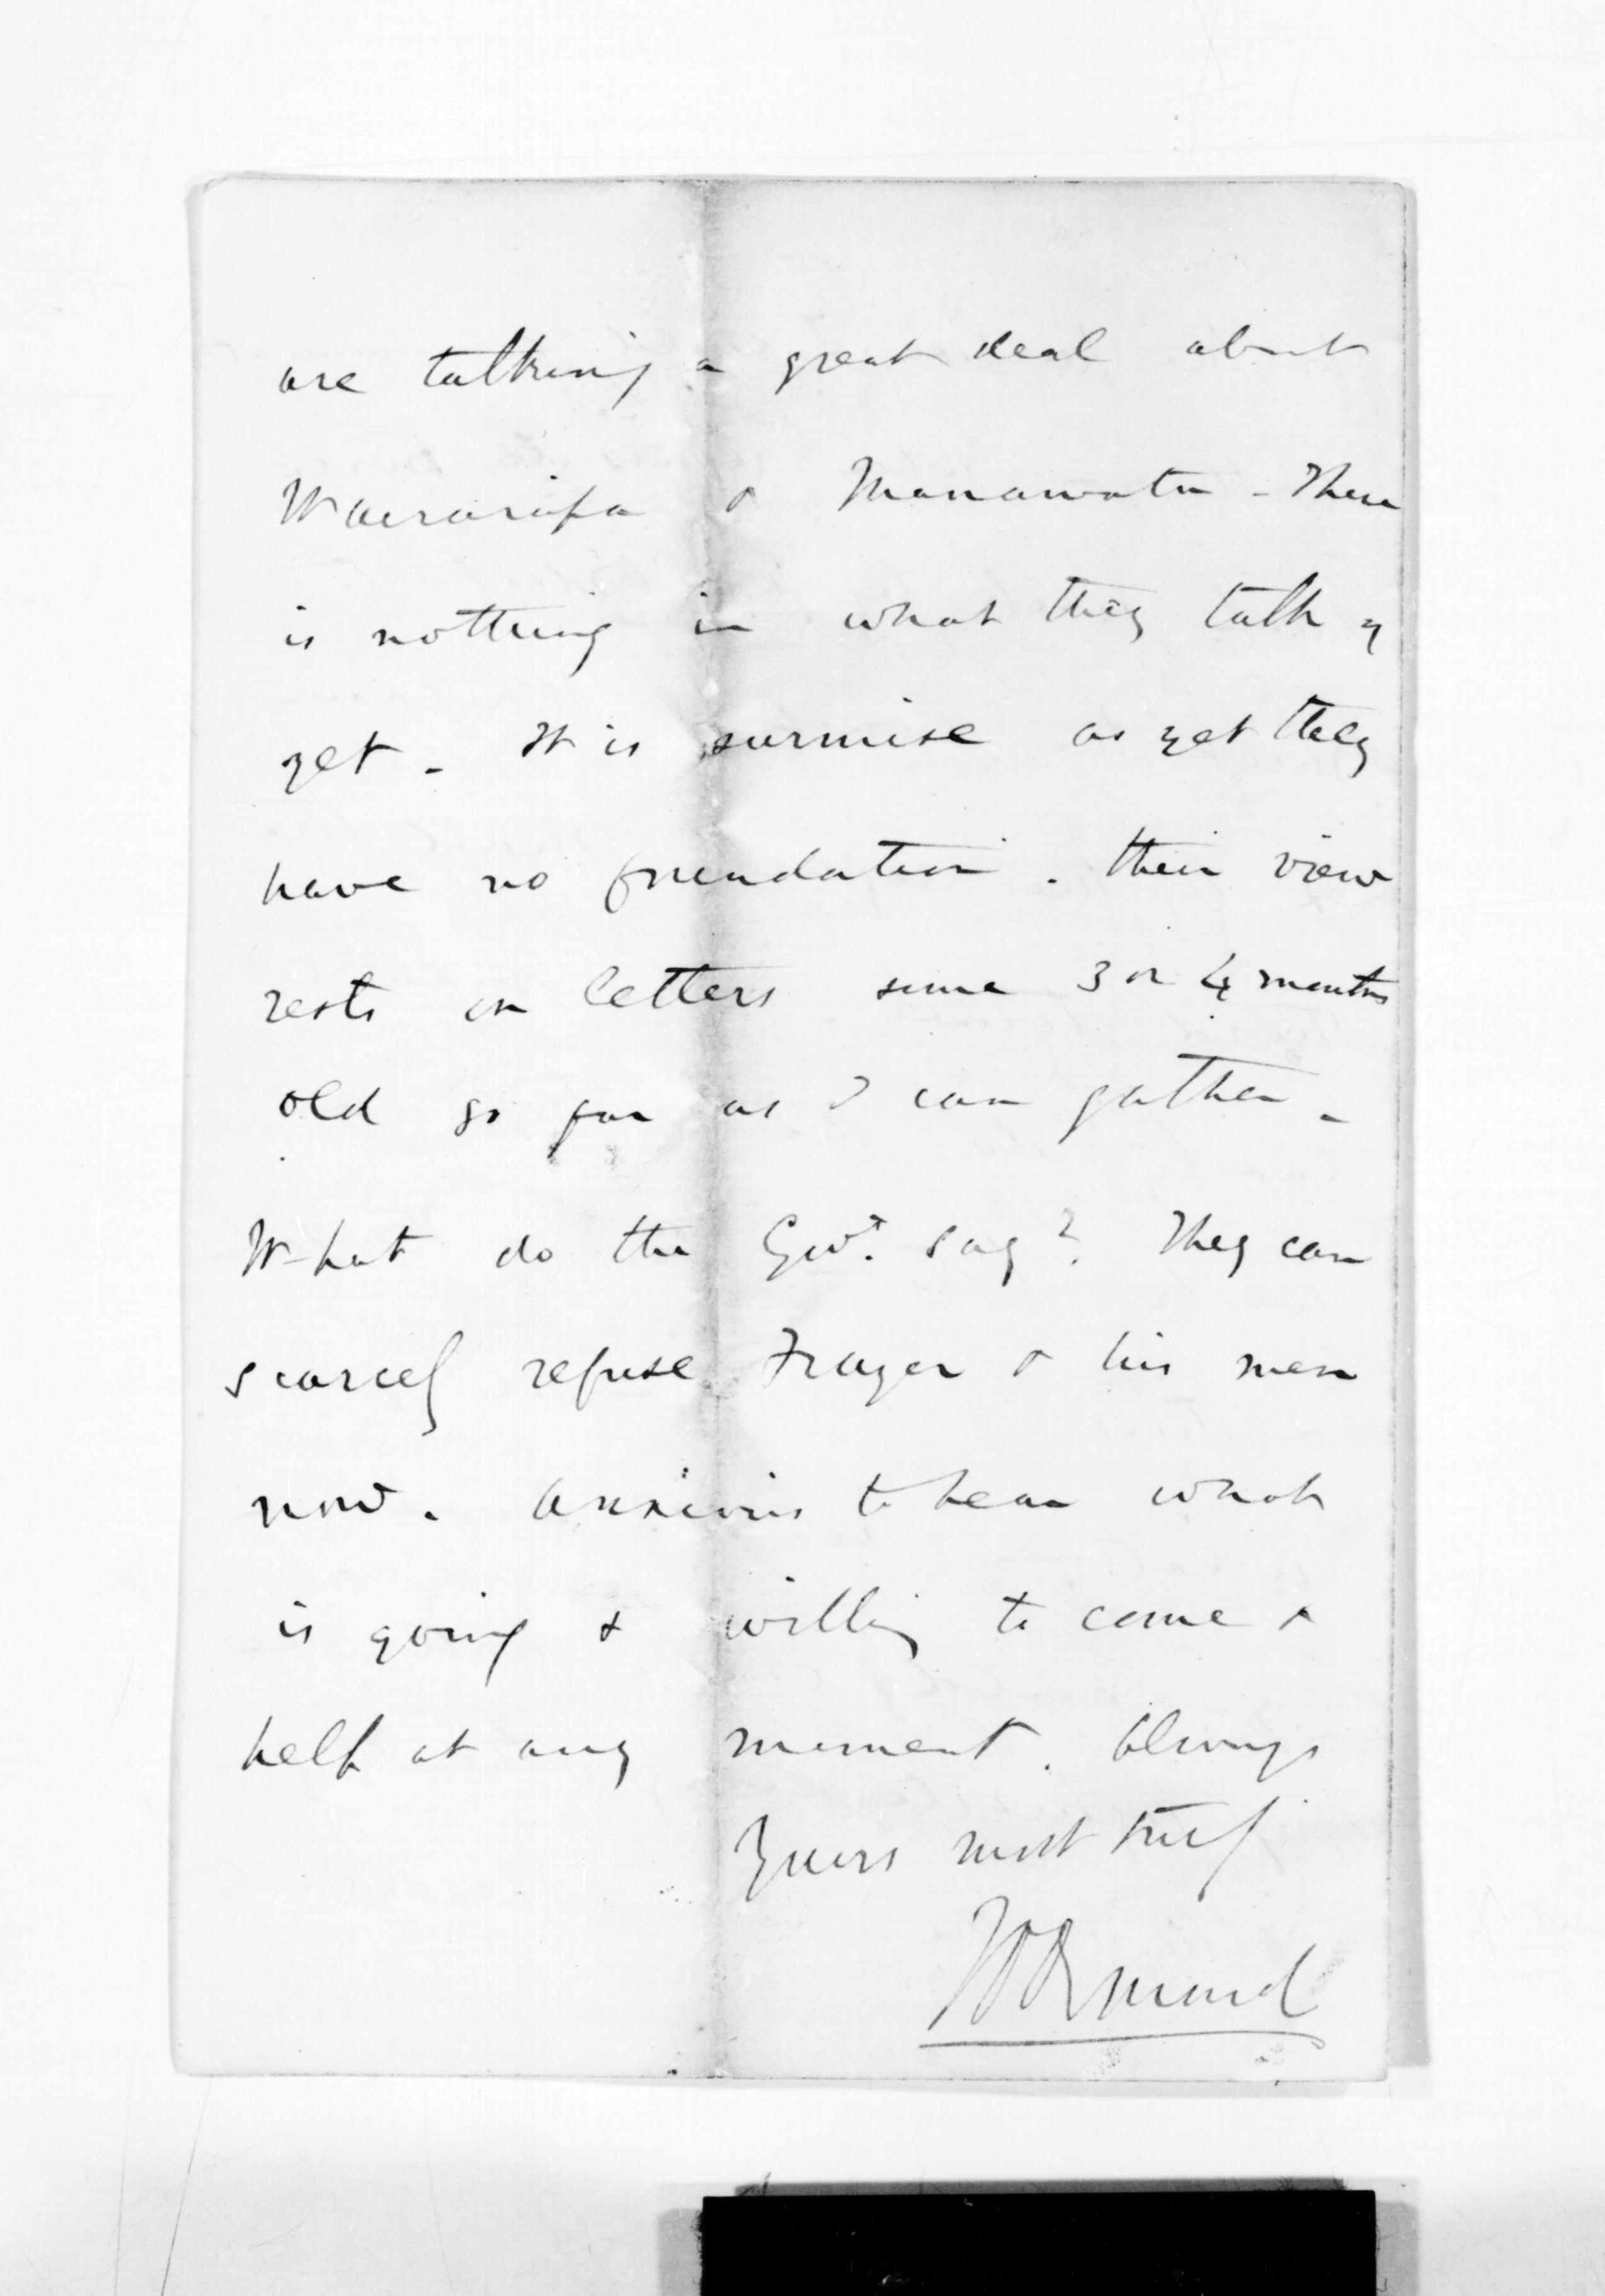 are talking a great deal about
Wairarapa & Manawatu - There
is nothing in what they talk of
yet - It is surmise as yet they
have no foundation. their view
rests on letters some 3 or 4 months
old so far as I can gather -
What do the Govt. say? They can
scarcely refuse Frazer & his men
now. Anxious to hear what
is going & willing to come &
help at any moment. Always
Yours most truly
JDOrmond